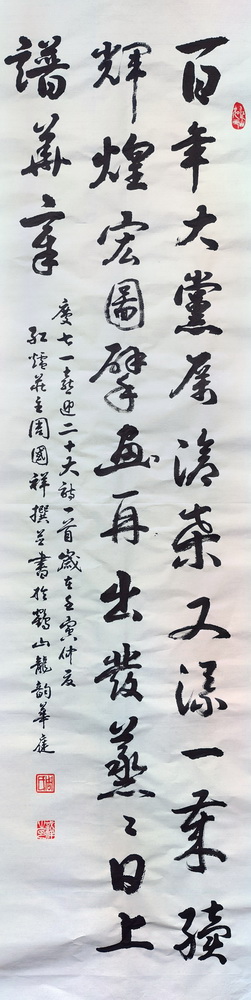 百年大黨歷滄桑又添一歲續
輝煌宏圖擘畫再出發蒸〻日上
譜華章
慶七一喜迎二十大詩一首歲在壬寅仲夏
紅爐莊主周國祥撰並書於鶴山龍韵華庭